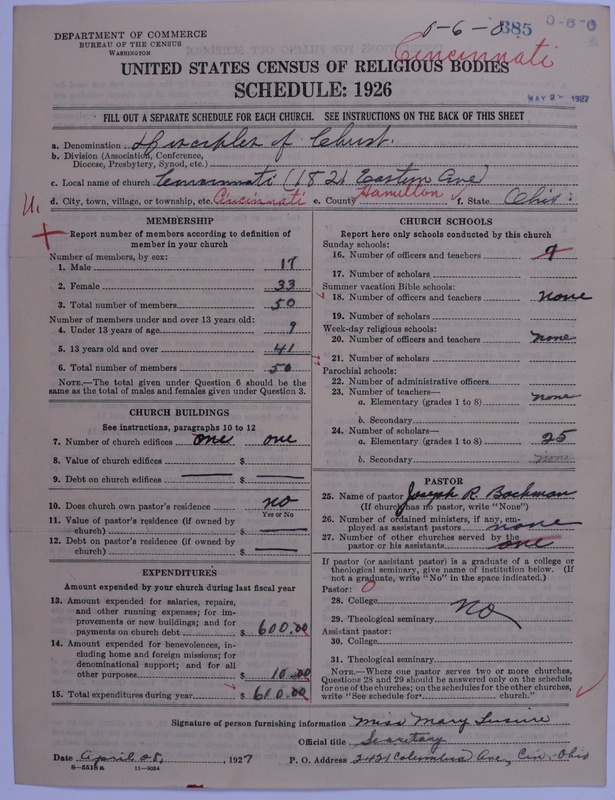 DEPARTMENT OF COMMERCE
BUREAU OF THE CENSUS
WASHINGTON
0-6-0
385
0-6-0
Cincinnati
UNITED STATES CENSUS OF RELIGIOUS BODIES
SCHEDULE: 1926
MAY 2- 1927
FILL OUT A SEPARATE SCHEDULE FOR EACH CHURCH. SEE INSTRUCTIONS ON THE BACK OF THIS SHEET
a. Denomination Disciples of Christ.
b. Division (Association, Conference, Diocese, Presbytery, Synod, etc.)
c. Local name of church Cincinnati (1821 Eastern Ave)
d. City, town, village, or township, etc. Cincinnati e. County Hamilton f. State Ohio
U.
MEMBERSHIP
Report number of members according to definition of
member in your church
Number of members, by sex:
1. Male 17
2. Female 33
3. Total number of members 50
Number of members under and over 13 years old:
4. Under 13 years of age 9
5. 13 years old and over 41
6. Total number of members 50
NOTE.—The total given under Question 6 should be
same as the total of males and females given under Question 3.
CHURCH BUILDINGS
See instructions, paragraphs 10 to 12
7. Number of church edifices one one
8. Value of church edifices $
9. Debt on church edifices $
10. Does church own pastor's residence no
Yes or No
11. Value of pastor's residence (if owned by
church) $
12. Debt on pastor's residence (if owned by
church) $
EXPENDITURES
Amount expended by your church during last fiscal year
13. Amount expended for salaries, repairs,
and other running expenses; for im-
provements or new buildings; and for
payments on church debt $ 600.00
14. Amount expended for benevolences, in-
cluding home and foreign missions; for
denominational support; and for all
other purposes $ 10.00
15. Total expenditures during year $ 610.00
CHURCH SCHOOLS
Report here only schools conducted by this church
Sunday schools:
16. Number of officers and teachers 7
17. Number of scholars
Summer vacation Bible schools:
18. Number of officers and teachers none
19. Number of scholars
Week-day religious schools:
20. Number of officers and teachers none
21. Number of scholars
Parochial schools:
22. Number of administrative officers
23. Number of teachers—
a. Elementary (grades 1 to 8) none
b. Secondary
24. Number of scholars—
a. Elementary (grades 1 to 8) 25
b. Secondary none
PASTOR
25. Name of pastor Joseph R. Bachman
(If church has no pastor, write "None")
26. Number of ordained ministers, if any, em-
ployed as assistant pastors none
27. Number of other churches served by the
pastor or his assistants one
If pastor (or assistant pastor) is a graduate of a college or
theological seminary, give name of institution below. (If
not a graduate, write "No" in the space indicated.)
Pastor:
28. College
no
29. Theological seminary
Assistant pastor:
30. College
31. Theological seminary
NOTE.—Where one pastor serves two or more churches,
Questions 28 and 29 should be answered only on the schedule
for one of the churches; on the schedules for the other churches,
write "See schedule for church."
Signature of person furnishing information Miss Mary
Official title Secretary
Date April 28, 1927 P. O. Address 2421 Columbia Ave, Cin. Ohio
8-5518a 11-9054